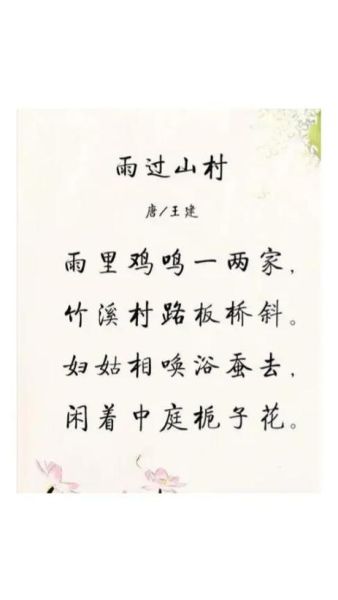 雨过山村
唐/王建
雨里鸡鸣一两家，
竹溪村路板桥斜。
妇姑相唤浴蚕去，
闲着中庭栀子花。